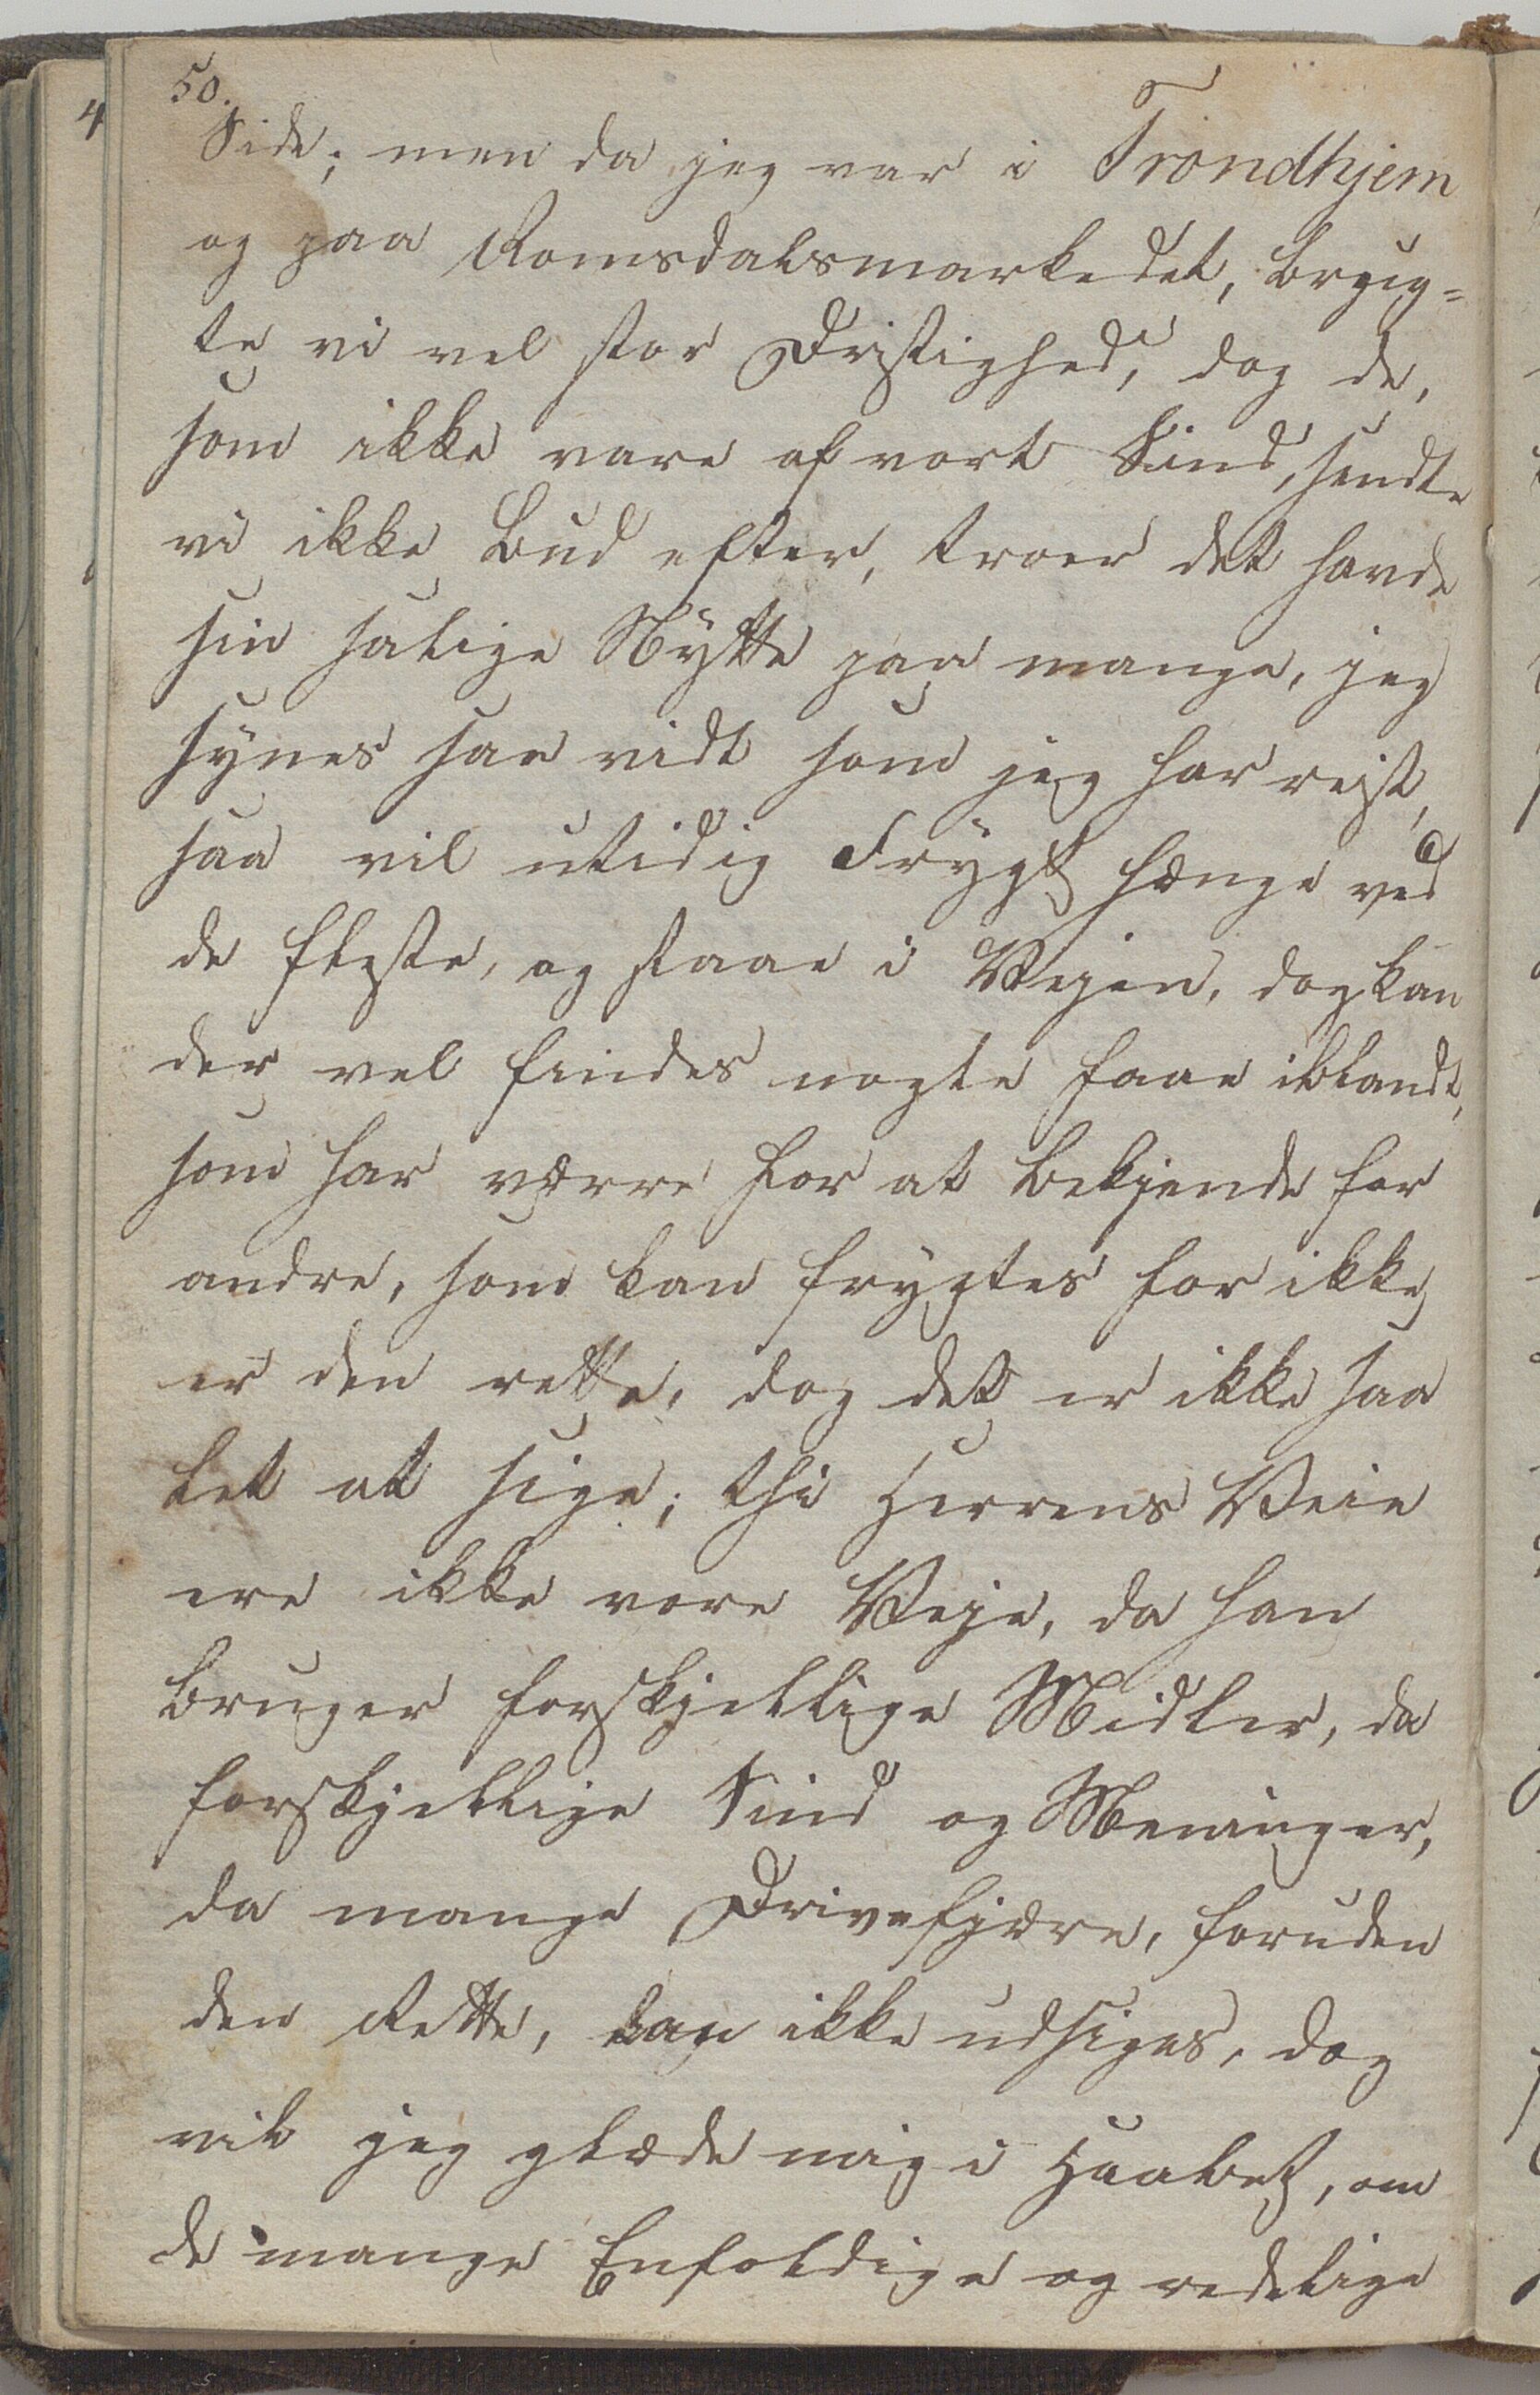 50.
Side; men da jeg var i Trondhjem
og paa Romsdalsmarkedet, brug-
te vi vel stor Dristighed, dog de,
som ikke vare af vort Sind, sendte
vi ikke Bud efter, troer det havde
sin salige Nÿtte paa mange, jeg
sÿnes saa vidt som jeg har reist,
saa vil utidig Frÿgt hænge ved
de fleste, og staae i Vejen, dog kan
der vel findes nogle faae iblandt,
som har værre for at bekjende for
andre, som kan frygtes for ikke
er den rette, dog det er ikke saa
let at sige; thi Herrens Veie
ere ikke vore Veje, da han
bruger forskjellige Midler, da
forskjellige Sind og Meninger,
da mange Drivefjære, foruden
den Rette, kan ikke udsiges, dog
vil jeg glæde mig i Haabet, om
de mange Enfoldige og redelige
4